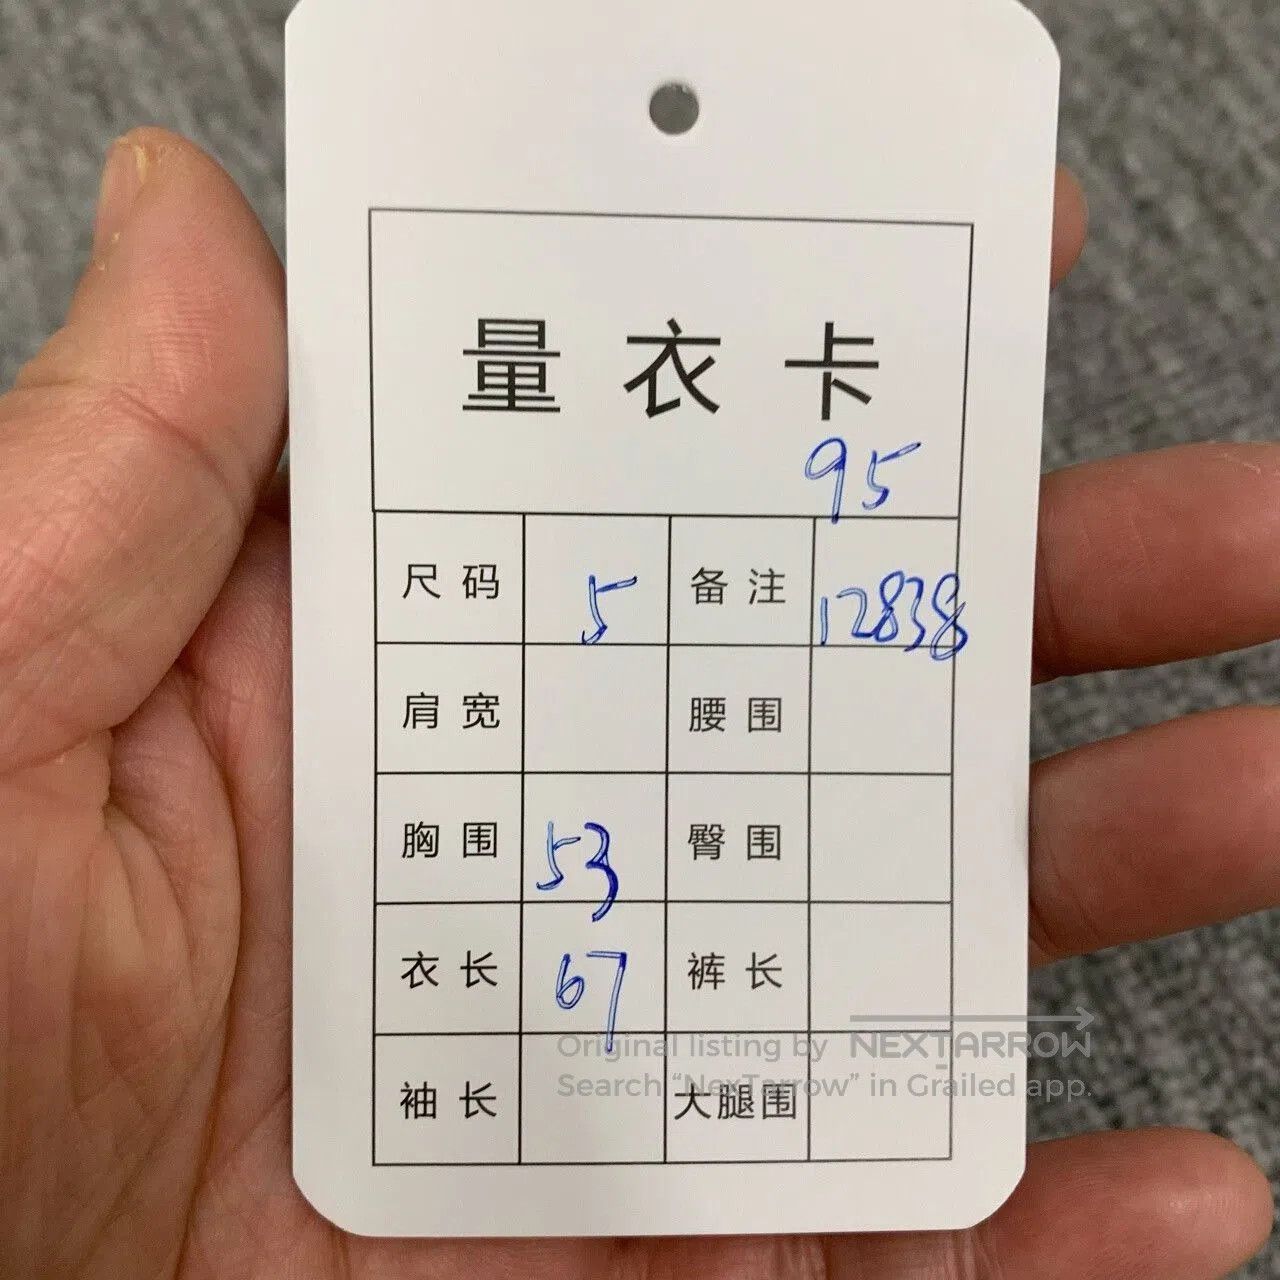 量衣卡
95
尺码 5 备注 12838
肩宽 腰围
胸围 53 臀围
衣长 67 裤长
Original listing by NEXTARROW
Search “NexTarrow” in Grailed app.
袖长 大腿围